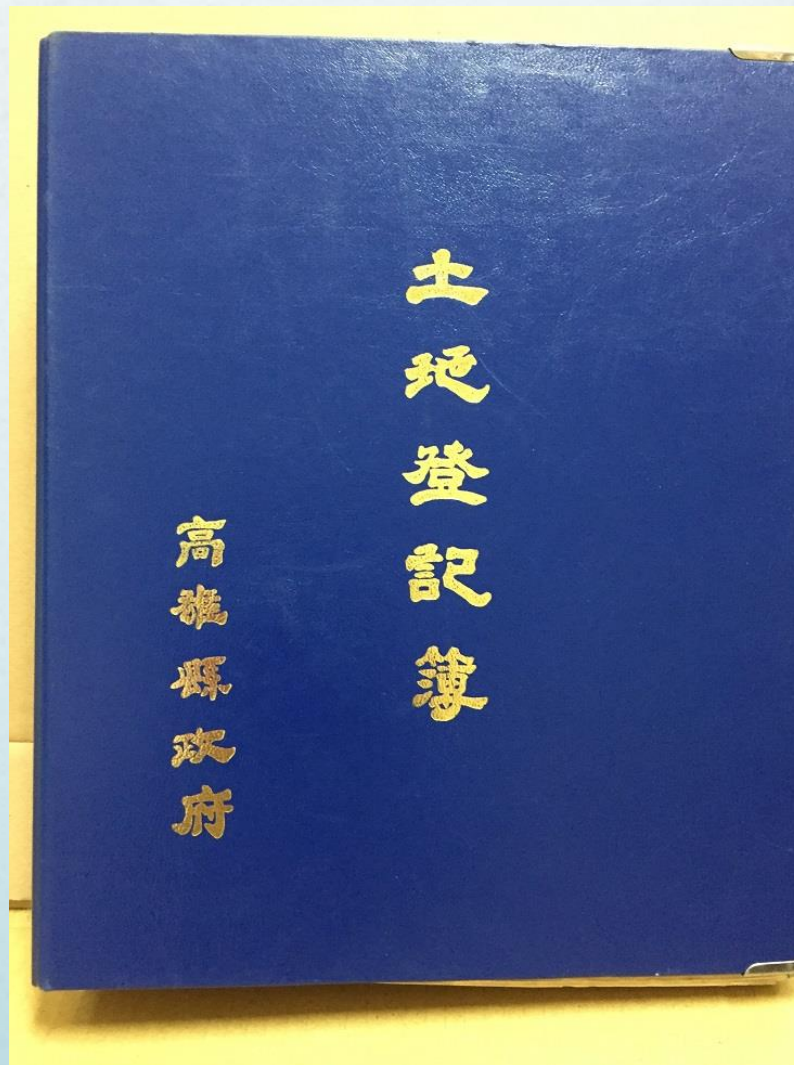 土地登記簿
高雄縣政府